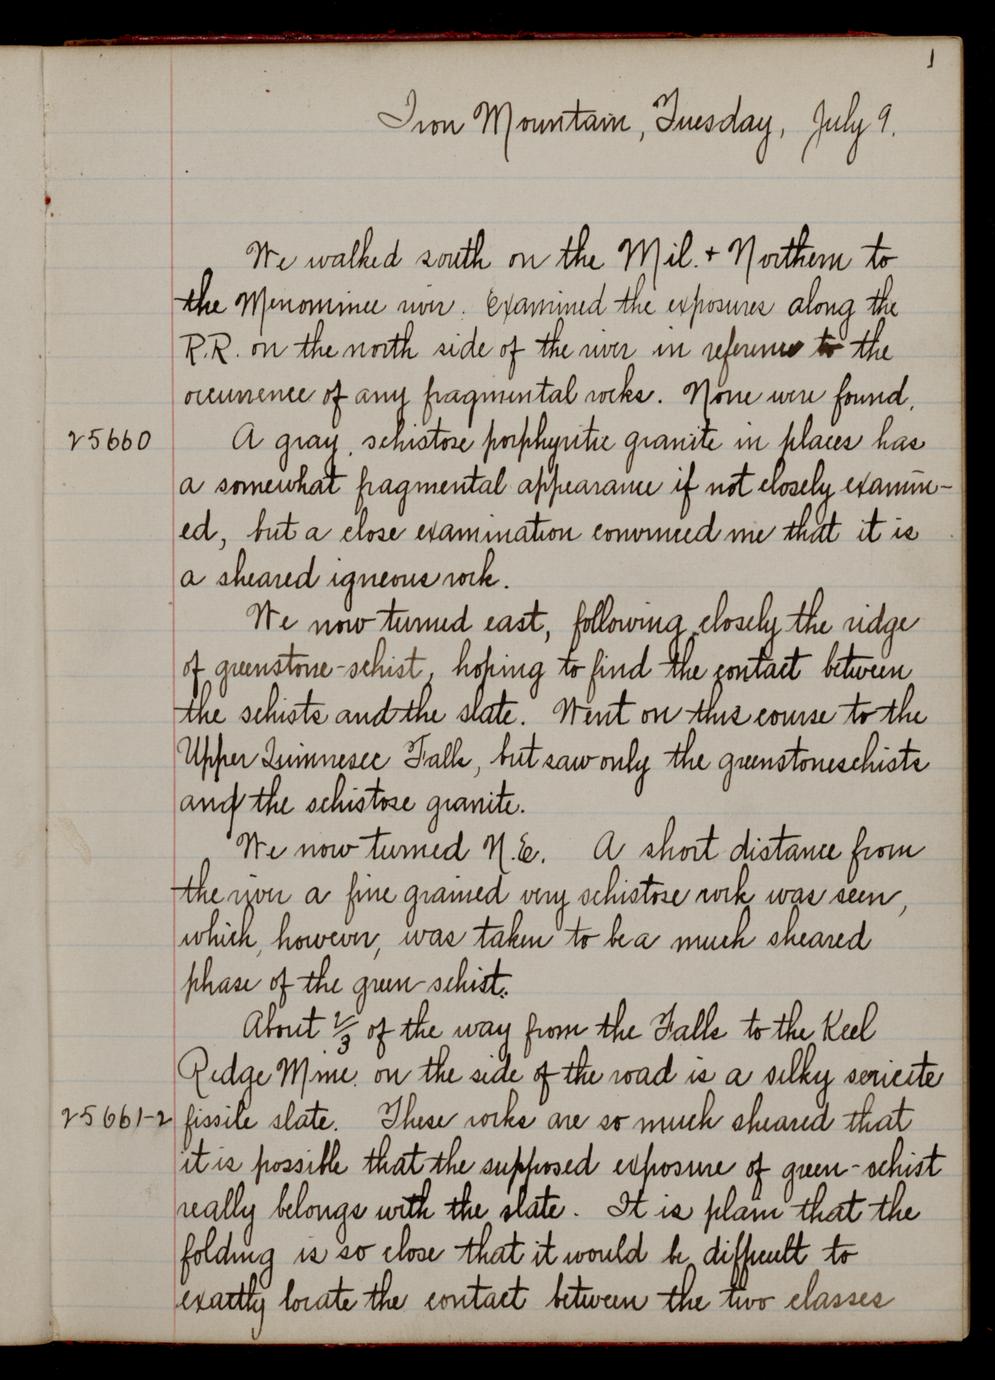 1
Iron Mountain, Tuesday, July 9.
We walked south on the Mil. + Northern to
the Menominee river. Examined the exposures along the
R.R. on the north side of the river in reference to the
occurrence of any fragmental rocks. None were found.
25660 A gray, schistose porphyritic granite in places has
a somewhat fragmental appearance if not closely examin-
ed, but a close examination convinced me that it is
a sheared igneous rock.
We now turned east, following closely the ridge
of greenstone-schist, hoping to find the contact between
the schists and the slate. Went on this course to the
Upper Quinnesec Falls, but saw only the greenstone schists
and the schistose granite.
We now turned N.E. A short distance from
the river a fine grained very schistose rock was seen,
which, however, was taken to be a much sheared
phase of the green-schist.
About 2/3 of the way from the Falls to the Keel
Ridge Mine, on the side of the road is a silky sericite
25661-2 fissile slate. These rocks are so much sheared that
it is possible that the supposed exposure of green-schist
really belongs with the slate. It is plain that the
folding is so close that it would be difficult to
exactly locate the contact between the two classes